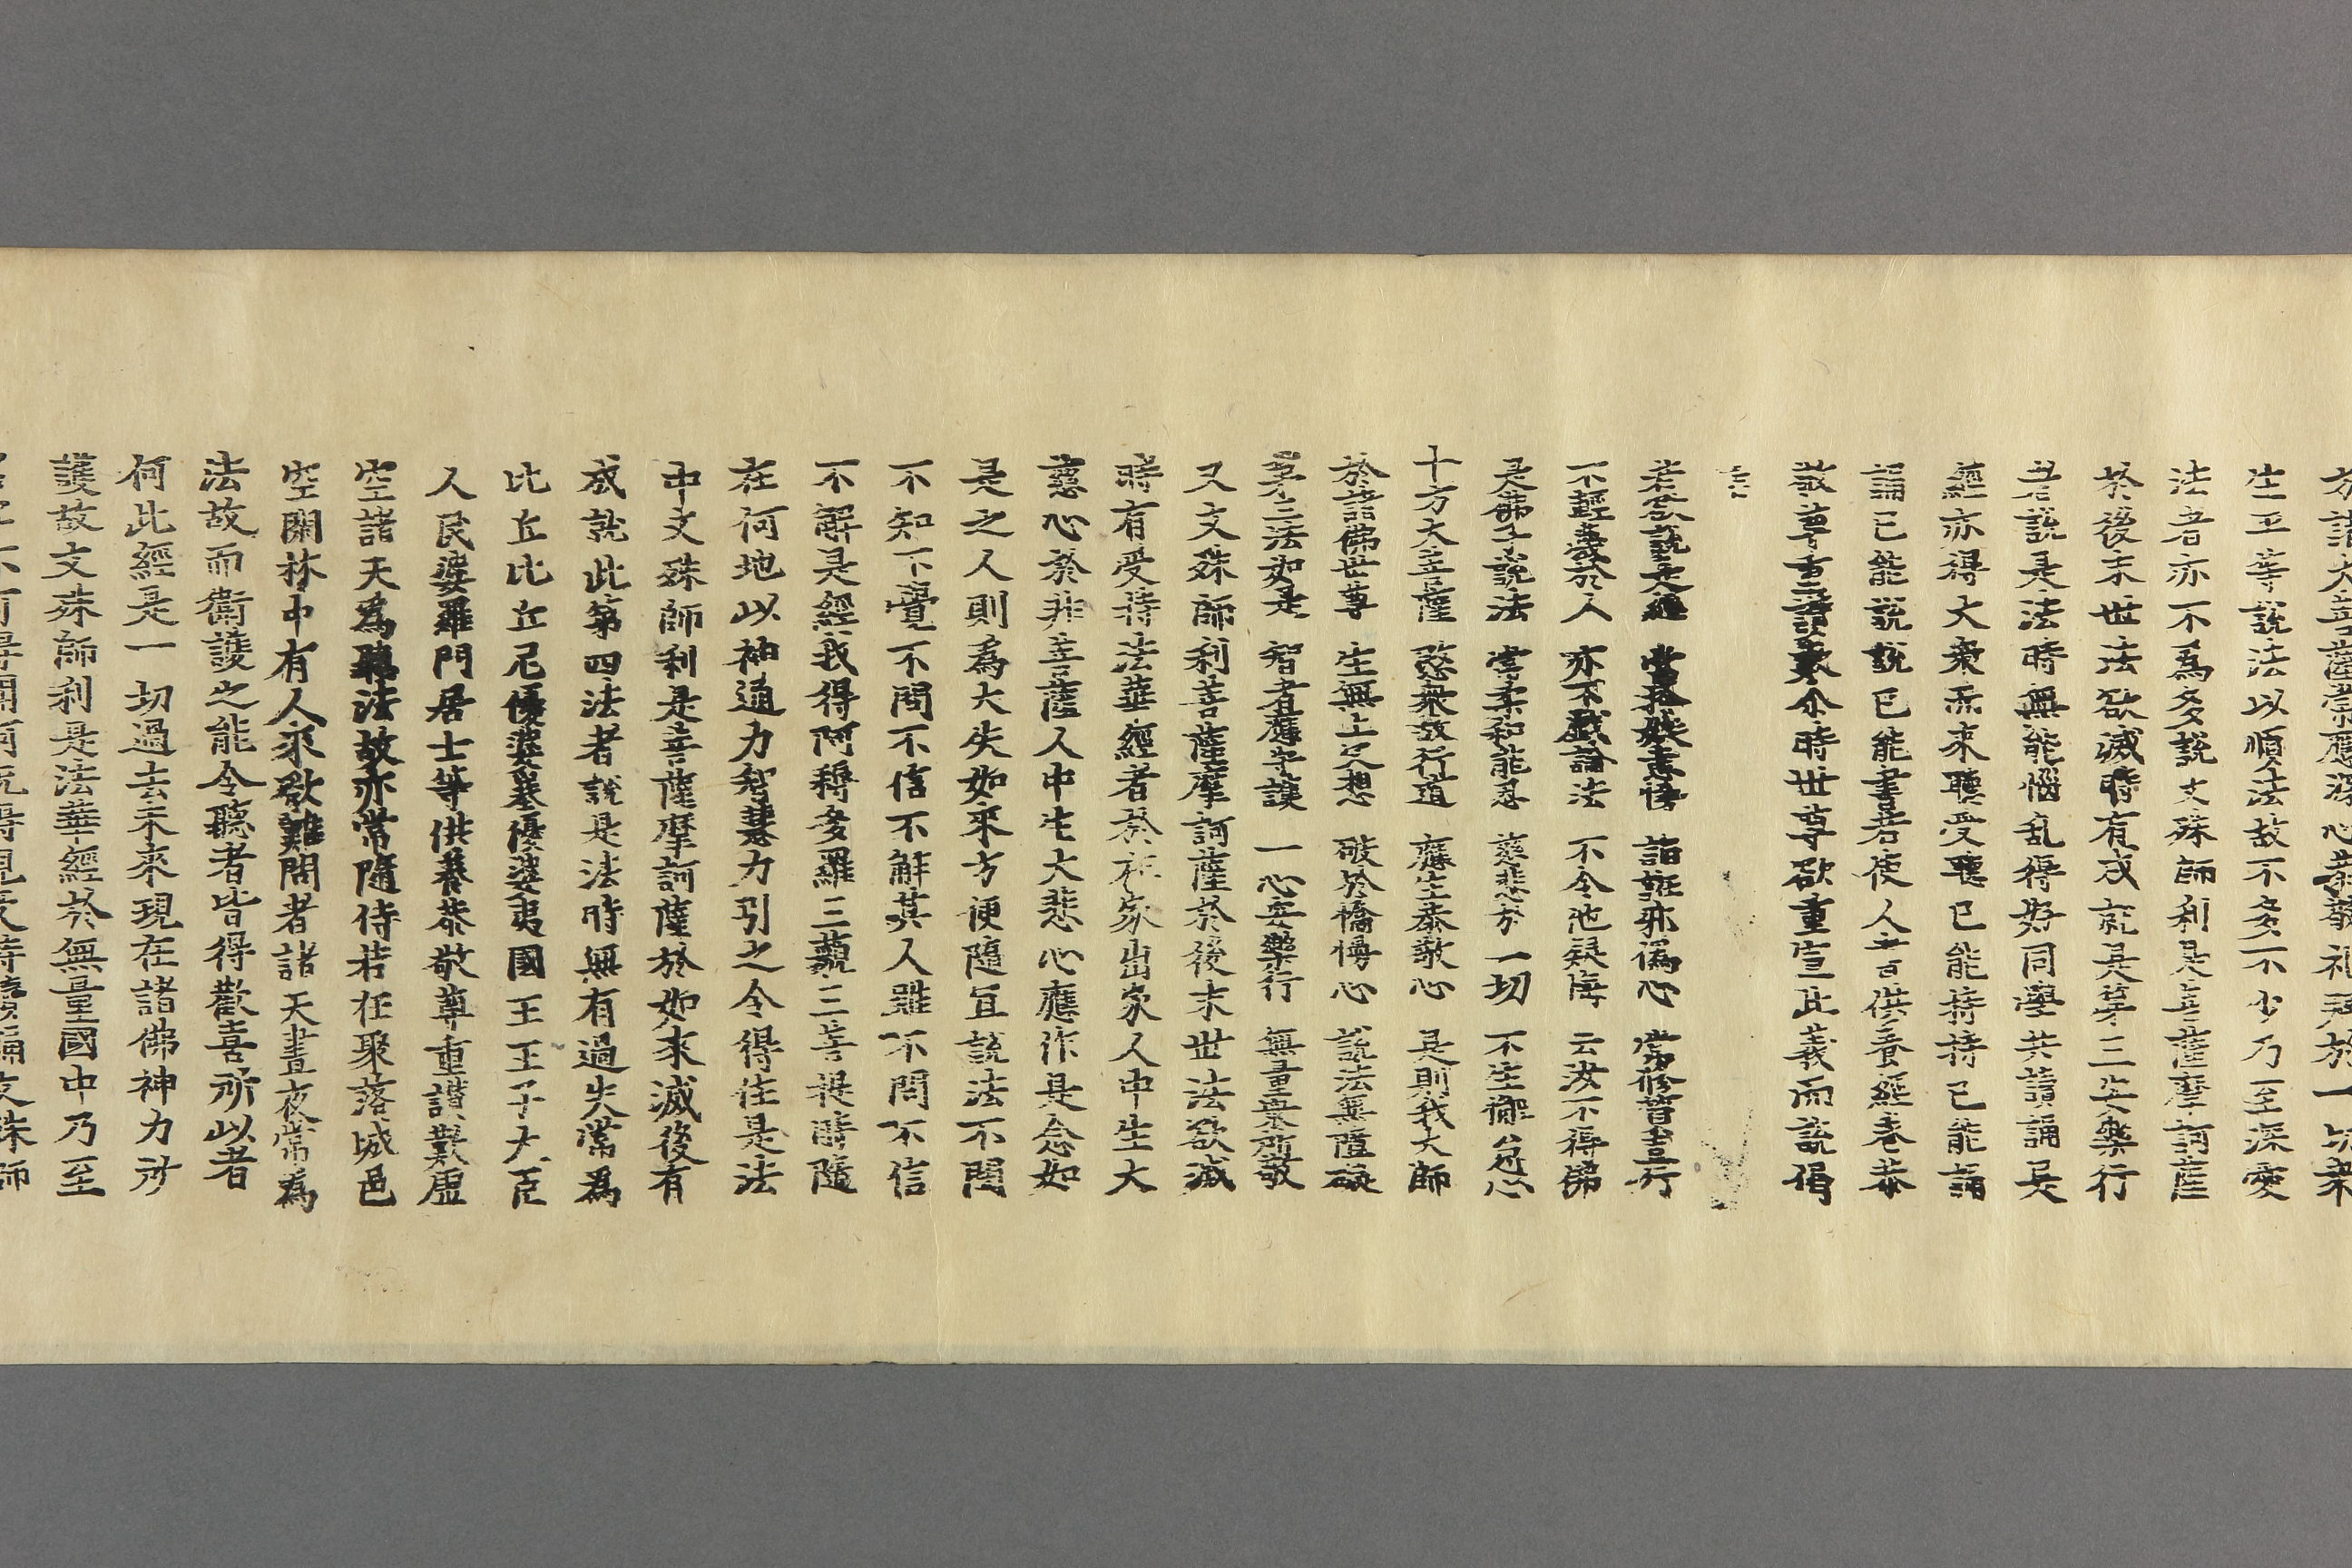 方諸大菩薩常應深心恭敬禮拜於一切衆
生平等說法以順法故不多不少乃至深愛
法者亦不為多說文殊師利是菩薩摩訶薩
於後末世法欲滅時有成就是第三安樂行
者說是法時無能惱乱得好同學共讀誦是
經亦得大衆而來聽受聽已能持持已能誦
誦已能說說已能書若使人書供養經卷恭
敬尊重讚歎尒時世尊欲重宣此義而說偈
若欲說是經 當捨嫉恚慢 諂誑邪偽心 常修質直行
不輕蔑於人 亦不戲論法 不令他疑悔 云汝不得佛
是佛子說法 常柔和能忍 慈悲於一切 不生懈怠心
十方大菩薩 愍衆故行道 應生恭敬心 是則我大師
於諸佛世尊 生無上父想 破於憍慢心 說法無障礙
第三法如是 智者應守護 一心安樂行 無量衆所敬
又文殊師利菩薩摩訶薩於後末世法欲滅
時有受持法華經者於在家出家人中生大
慈心於非菩薩人中生大悲心應作是念如
是之人則為大失如來方便隨宜說法不聞
不知不覺不問不信不解其人雖不問不信
不解是經我得阿耨多羅三藐三菩提時隨
在何地以神通力智慧力引之令得住是法
中文殊師利是菩薩摩訶薩於如來滅後有
成就此第四法者說是法時無有過失常為
比丘比丘尼優婆塞優婆夷國王王子大臣
人民婆羅門居士等供養恭敬尊重讚歎虛
空諸天為聽法故亦常隨侍若在聚落城邑
空閑林中有人來欲難問者諸天晝夜常為
法故而衛護之能令聽者皆得歡喜所以者
何此經是一切過去未來現在諸佛神力所
護故文殊師利是法華經於無量國中乃至